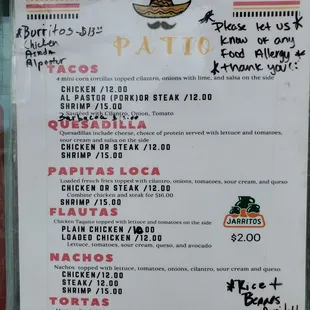 *Burritos - $13
Chicken
Asada
Alpastor
Please let us
know of any
Food Allergy
* thank you!
PATIO
TACOS
4 mini corn tortillas topped cilantro, onions with lime, and salsa on the side
CHICKEN /12.00
AL PASTOR (PORK)OR STEAK /12.00
SHRIMP /15.00
* Sauteed with Cilantro, Onion, Tomato
QUESADILLA
Quesadillas include cheese, choice of protein served with lettuce and tomatoes,
sour cream and salsa on the side
CHICKEN OR STEAK /12.00
SHRIMP /15.00
PAPITAS LOCA
Loaded french fries topped with cilantro, onions, tomatoes, sour cream, and queso
CHICKEN OR STEAK /12.00
Combine chicken and steak for $16.00
SHRIMP /15.00
FLAUTAS
Chicken Taquito topped with lettuce and tomatoes on the side
PLAIN CHICKEN /10.00
LOADED CHICKEN /12.00
Lettuce, tomatoes, sour cream, queso, and avocado
JARRITOS
$2.00
NACHOS
Nachos topped with lettuce, tomatoes, onions, cilantro, sour cream and queso
CHICKEN/12.00
STEAK/ 12.00
SHRIMP /15.00
*Rice +
Beans
TORTAS